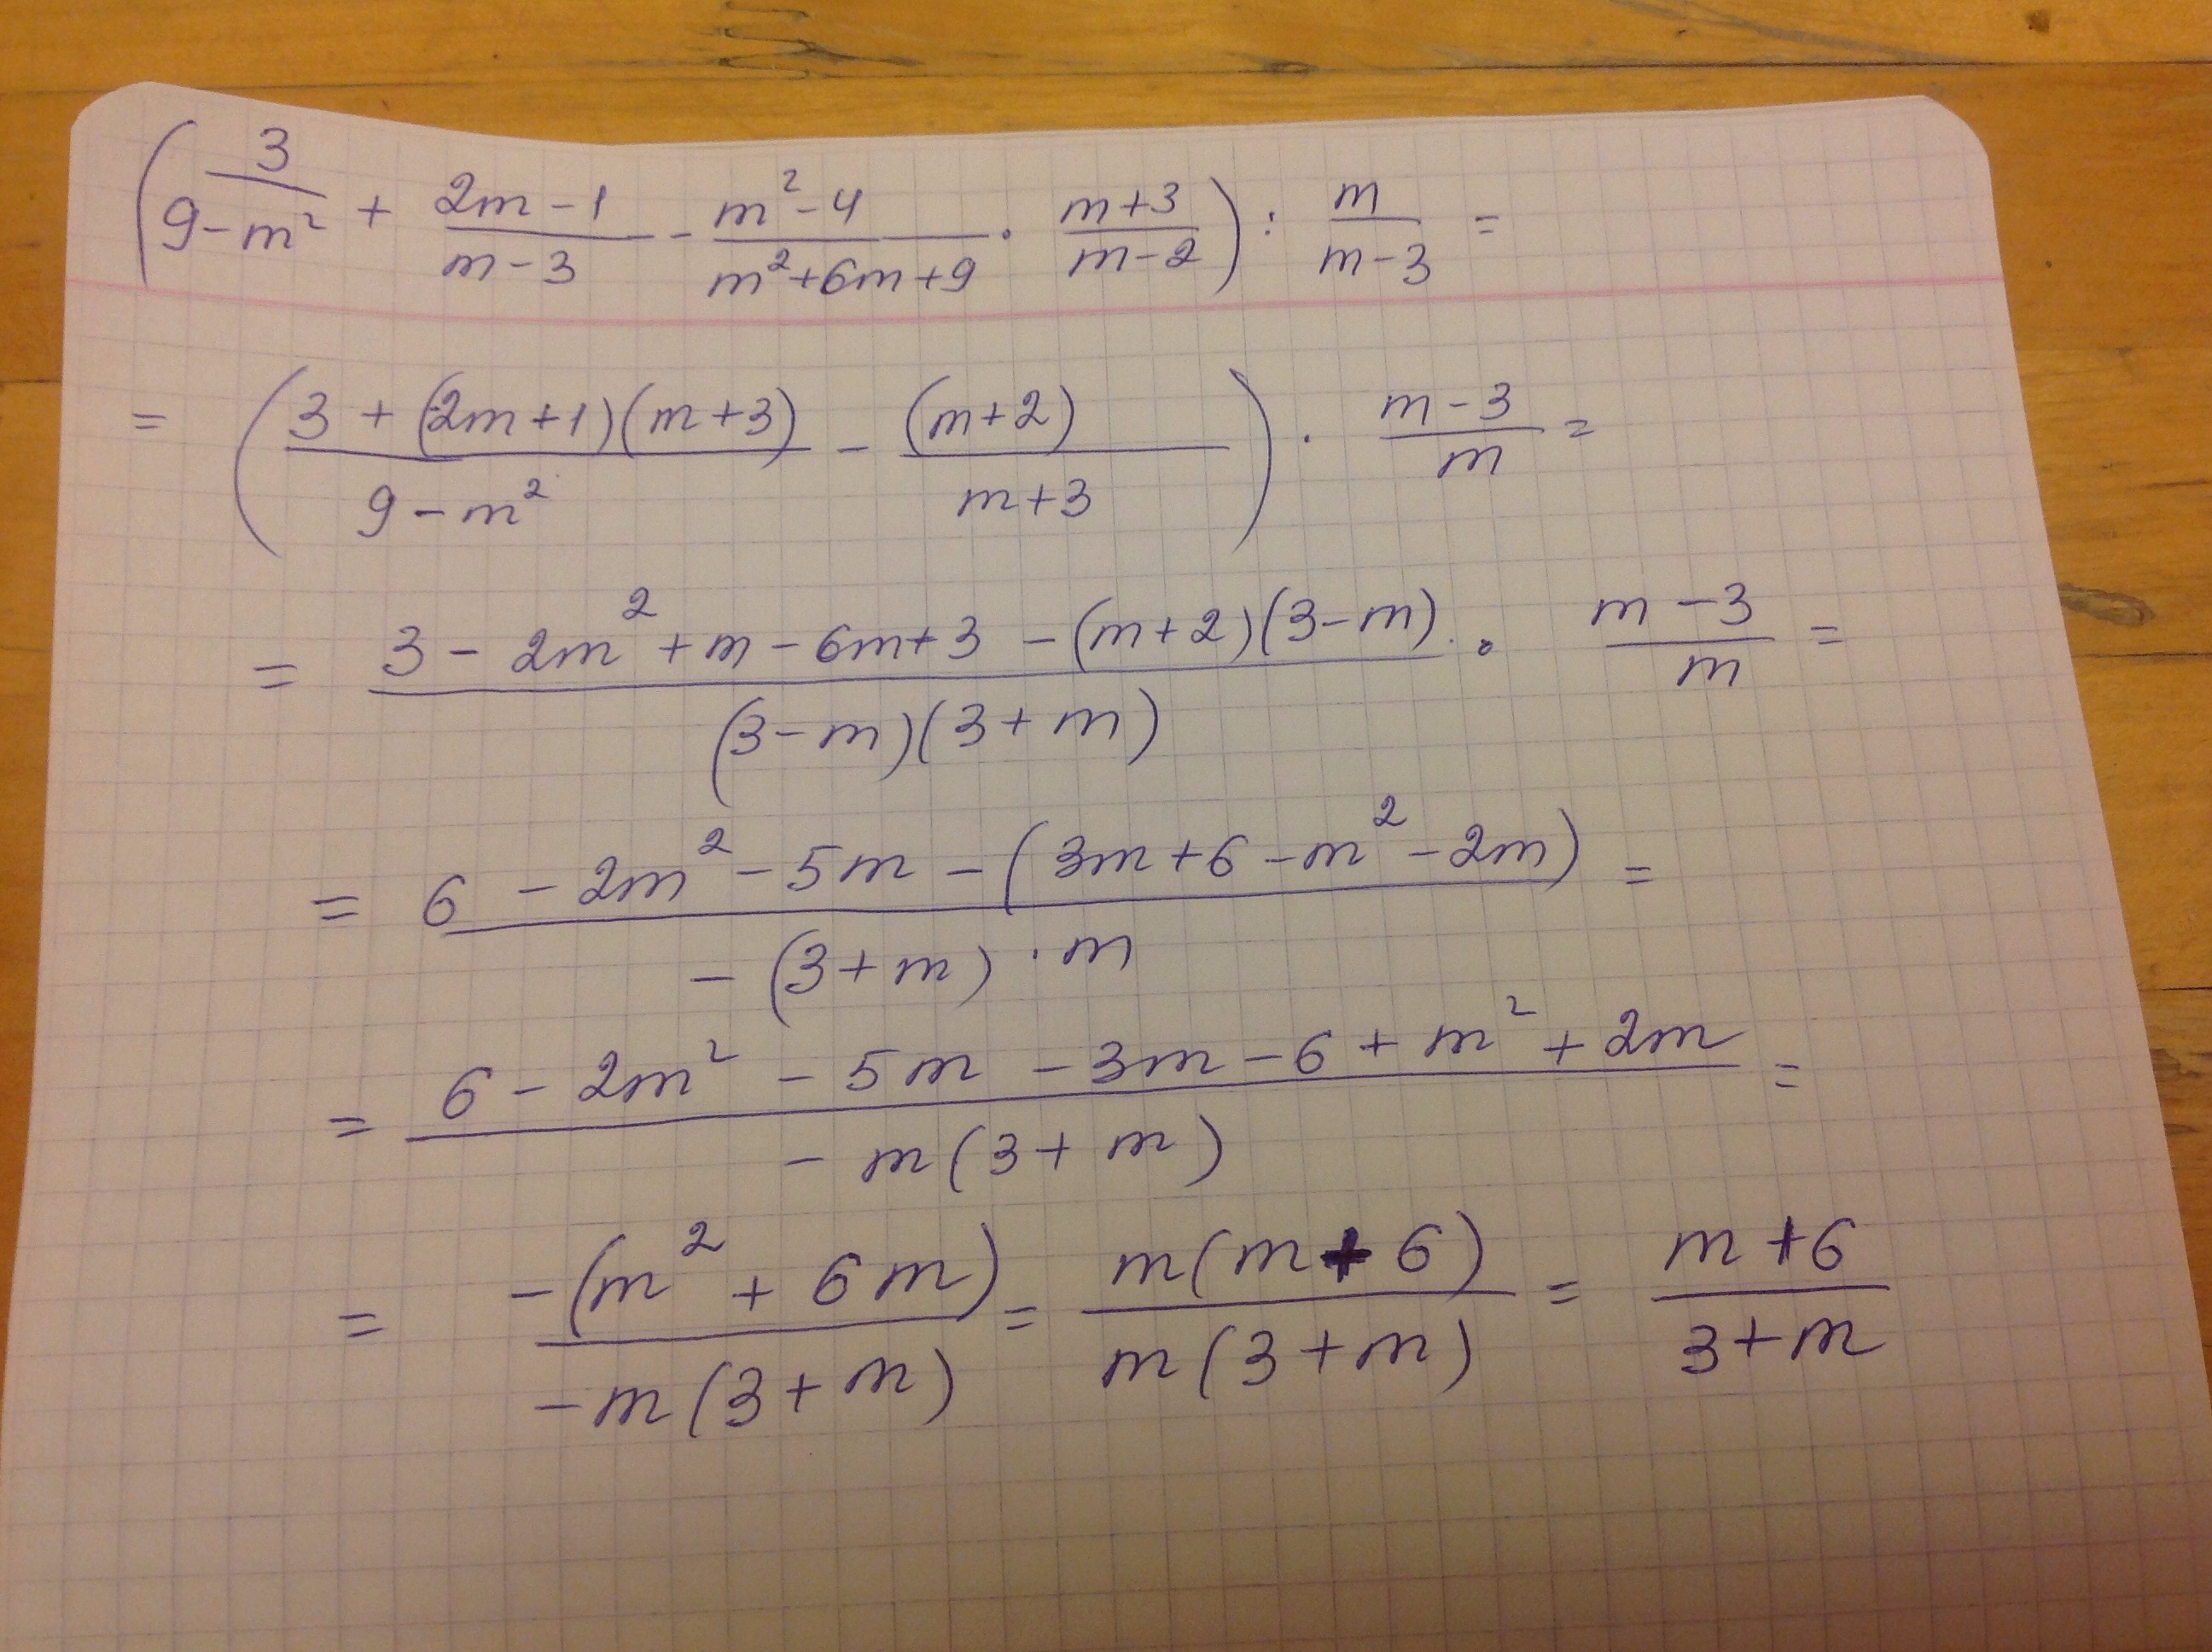 (3/(9-m²) + (2m-1)/(m-3) - (m²-4)/(m²+6m+9) · (m+3)/(m-2)) : m/(m-3) =
= ((3+(-2m+1)(m+3))/(9-m²) - (m+2)/(m+3)) · (m-3)/m =
= (3-2m²+m-6m+3-(m+2)(3-m))/((3-m)(3+m)) · (m-3)/m =
= (6-2m²-5m-(3m+6-m²-2m))/(-(3+m)·m) =
= (6-2m²-5m-3m-6+m²+2m)/(-m(3+m)) =
= (-(m²+6m))/(-m(3+m)) = (m(m+6))/(m(3+m)) = (m+6)/(3+m)